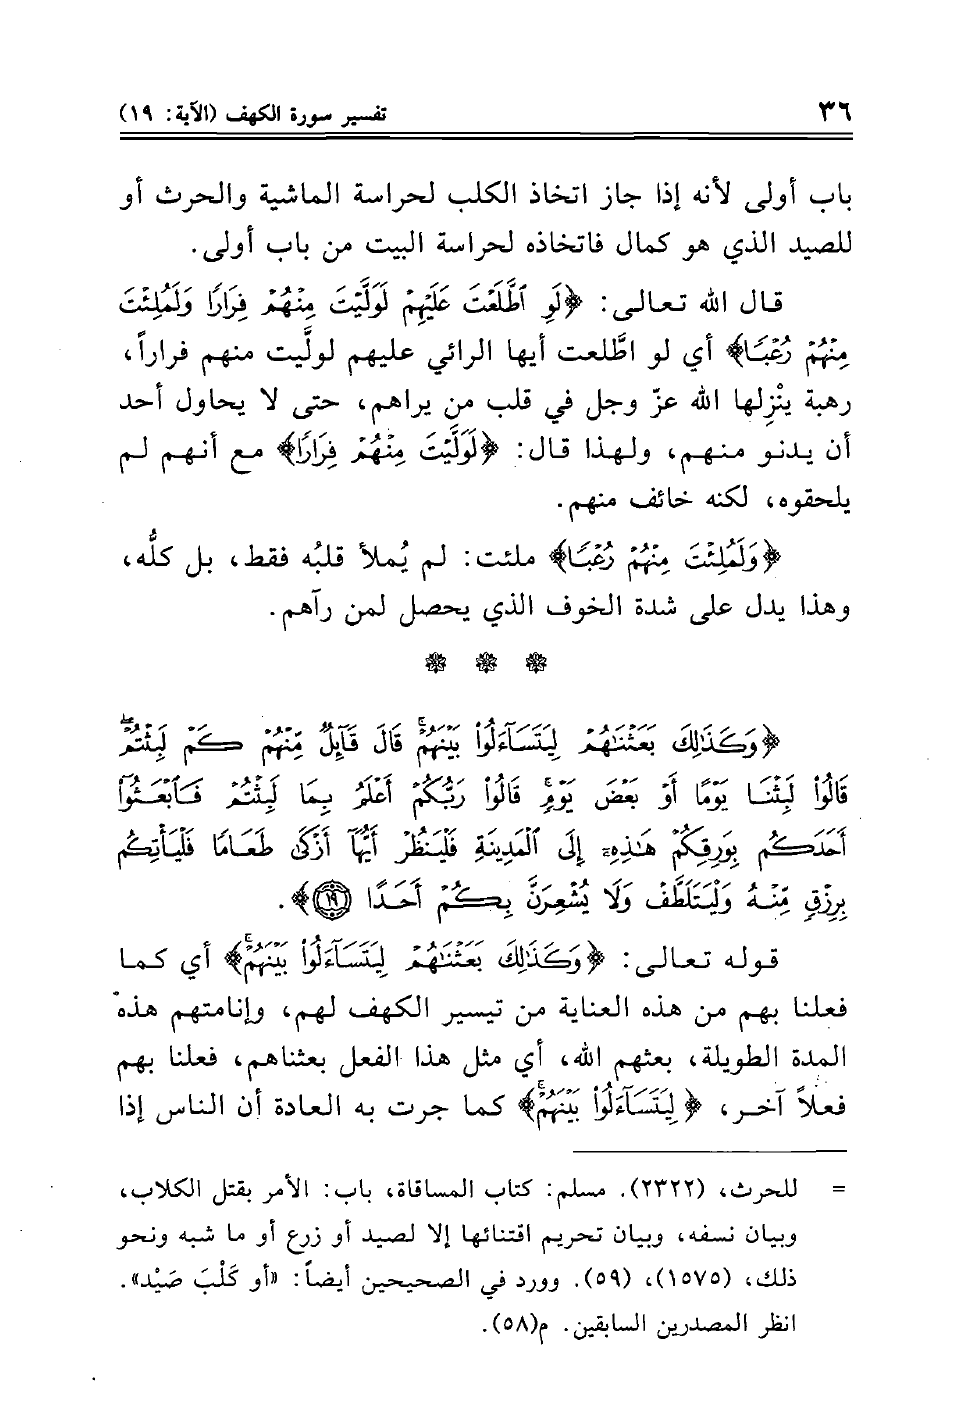 ٣٦ تفسير سورة الكهف (الآية: ١٩)
باب أولى لأنه إذا جاز اتخاذ الكلب لحراسة الماشية والحرث أو
للصيد الذي هو كمال فاتخاذه لحراسة البيت من باب أولى.
قال الله تعالى: ﴿لَوِ ٱطَّلَعْتَ عَلَيْهِمْ لَوَلَّيْتَ مِنْهُمْ فِرَارًا وَلَمُلِئْتَ
مِنْهُمْ رُعْبًا﴾ أي لو اطَّلعت أيها الرائي عليهم لولَّيت منهم فراراً،
رهبة ينْزِلها الله عزّ وجل في قلب من يراهم، حتى لا يحاول أحد
أن يدنو منهم، ولهذا قال: ﴿لَوَلَّيْتَ مِنْهُمْ فِرَارًا﴾ مع أنهم لم
يلحقوه، لكنه خائف منهم.
﴿وَلَمُلِئْتَ مِنْهُمْ رُعْبًا﴾ ملئت: لم يُملأ قلبُه فقط، بل كلُّه،
وهذا يدل على شدة الخوف الذي يحصل لمن رآهم.
❁ ❁ ❁
﴿وَكَذَٰلِكَ بَعَثْنَٰهُمْ لِيَتَسَآءَلُوا۟ بَيْنَهُمْ ۚ قَالَ قَآئِلٌ مِّنْهُمْ كَمْ لَبِثْتُمْ ۖ
قَالُوا۟ لَبِثْنَا يَوْمًا أَوْ بَعْضَ يَوْمٍ ۚ قَالُوا۟ رَبُّكُمْ أَعْلَمُ بِمَا لَبِثْتُمْ فَٱبْعَثُوٓا۟
أَحَدَكُم بِوَرِقِكُمْ هَٰذِهِۦٓ إِلَى ٱلْمَدِينَةِ فَلْيَنظُرْ أَيُّهَآ أَزْكَىٰ طَعَامًا فَلْيَأْتِكُم
بِرِزْقٍ مِّنْهُ وَلْيَتَلَطَّفْ وَلَا يُشْعِرَنَّ بِكُمْ أَحَدًا ۝١٩﴾.
قوله تعالى: ﴿وَكَذَٰلِكَ بَعَثْنَٰهُمْ لِيَتَسَآءَلُوا۟ بَيْنَهُمْ ۚ﴾ أي كما
فعلنا بهم من هذه العناية من تيسير الكهف لهم، وإنامتهم هذه
المدة الطويلة، بعثهم الله، أي مثل هذا الفعل بعثناهم، فعلنا بهم
فعلاً آخر، ﴿لِيَتَسَآءَلُوا۟ بَيْنَهُمْ ۚ﴾ كما جرت به العادة أن الناس إذا
= للحرث، (٢٣٢٢). مسلم: كتاب المساقاة، باب: الأمر بقتل الكلاب،
وبيان نسفه، وبيان تحريم اقتنائها إلا لصيد أو زرع أو ما شبه ونحو
ذلك، (١٥٧٥)، (٥٩). وورد في الصحيحين أيضاً: «أو كَلْبَ صَيْد».
انظر المصدرين السابقين. م(٥٨).